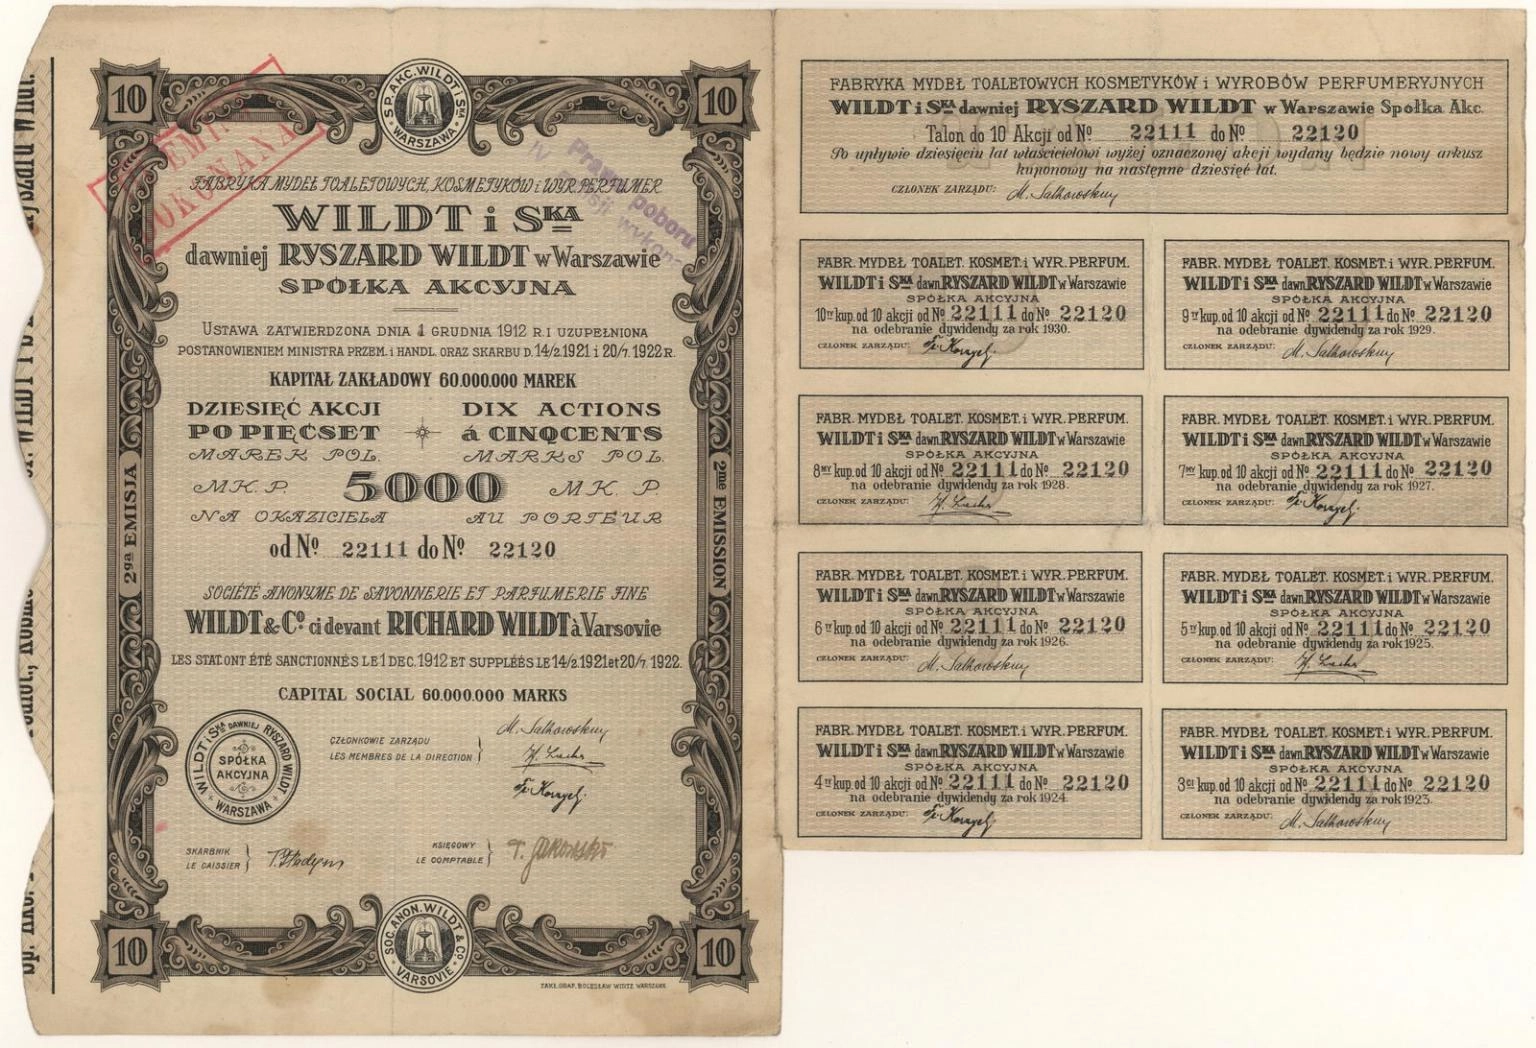 10
SP. AKC. WILDT i SKA
WARSZAWA
10
EMIS
DOKONANA
Prawo poboru
FABRYKA MYDEŁ TOALETOWYCH, KOSMETYKÓW i WYR. PERFUMER
WILDT i SKA
dawniej RYSZARD WILDT w Warszawie
SPÓŁKA AKCYJNA
USTAWA ZATWIERDZONA DNIA 1 GRUDNIA 1912 R. I UZUPEŁNIONA
POSTANOWIENIEM MINISTRA PRZEM. i HANDL. ORAZ SKARBU D. 14/2 1921 i 20/7. 1922 R.
KAPITAŁ ZAKŁADOWY 60.000.000 MAREK
DZIESIĘĆ AKCJI DIX ACTIONS
PO PIĘĆSET á CINQCENTS
MAREK POL. MARKS POL.
MK. P. 5000 MK. P.
NA OKAZICIELA AU PORTEUR
od No 22111 do No 22120
SOCIÉTÉ ANONYME DE SAVONNERIE ET PARFUMERIE FINE
WILDT & Co ci devant RICHARD WILDT à Varsovie
LES STAT. ONT ÉTÉ SANCTIONNÉS LE 1 DEC. 1912 ET SUPPLÉÉS LE 14/2. 1921 et 20/7. 1922.
CAPITAL SOCIAL 60.000.000 MARKS
2ga EMISJA
2me EMISSION
WILDT i SKA DAWNIEJ RYSZARD WILDT
SPÓŁKA
AKCYJNA
WARSZAWA
CZŁONKOWIE ZARZĄDU
LES MEMBRES DE LA DIRECTION
SKARBNIK
LE CAISSIER
KSIĘGOWY
LE COMPTABLE
10
SOC. ANON. WILDT & Co
VARSOVIE
10
ZAKŁ. GRAF. BOLESŁAW WIRTZ WARSZAWA
FABRYKA MYDEŁ TOALETOWYCH KOSMETYKÓW i WYROBÓW PERFUMERYJNYCH
WILDT i SKA dawniej RYSZARD WILDT w Warszawie Spółka Akc.
Talon do 10 Akcji od No 22111 do No 22120
Po upływie dziesięciu lat właścicielowi wyżej oznaczonej akcji wydany będzie nowy arkusz
kuponowy na następne dziesięć lat.
CZŁONEK ZARZĄDU:
FABR. MYDEŁ TOALET. KOSMET. i WYR. PERFUM.
WILDT i SKA dawn. RYSZARD WILDT w Warszawie
SPÓŁKA AKCYJNA
10ty kup. od 10 akcji od No 22111 do No 22120
na odebranie dywidendy za rok 1930.
CZŁONEK ZARZĄDU:
FABR. MYDEŁ TOALET. KOSMET. i WYR. PERFUM.
WILDT i SKA dawn. RYSZARD WILDT w Warszawie
SPÓŁKA AKCYJNA
9ty kup. od 10 akcji od No 22111 do No 22120
na odebranie dywidendy za rok 1929.
CZŁONEK ZARZĄDU:
FABR. MYDEŁ TOALET. KOSMET. i WYR. PERFUM.
WILDT i SKA dawn. RYSZARD WILDT w Warszawie
SPÓŁKA AKCYJNA
8my kup. od 10 akcji od No 22111 do No 22120
na odebranie dywidendy za rok 1928.
CZŁONEK ZARZĄDU:
FABR. MYDEŁ TOALET. KOSMET. i WYR. PERFUM.
WILDT i SKA dawn. RYSZARD WILDT w Warszawie
SPÓŁKA AKCYJNA
7my kup. od 10 akcji od No 22111 do No 22120
na odebranie dywidendy za rok 1927.
CZŁONEK ZARZĄDU:
FABR. MYDEŁ TOALET. KOSMET. i WYR. PERFUM.
WILDT i SKA dawn. RYSZARD WILDT w Warszawie
SPÓŁKA AKCYJNA
6ty kup. od 10 akcji od No 22111 do No 22120
na odebranie dywidendy za rok 1926.
CZŁONEK ZARZĄDU:
FABR. MYDEŁ TOALET. KOSMET. i WYR. PERFUM.
WILDT i SKA dawn. RYSZARD WILDT w Warszawie
SPÓŁKA AKCYJNA
5ty kup. od 10 akcji od No 22111 do No 22120
na odebranie dywidendy za rok 1925.
CZŁONEK ZARZĄDU:
FABR. MYDEŁ TOALET. KOSMET. i WYR. PERFUM.
WILDT i SKA dawn. RYSZARD WILDT w Warszawie
SPÓŁKA AKCYJNA
4ty kup. od 10 akcji od No 22111 do No 22120
na odebranie dywidendy za rok 1924.
CZŁONEK ZARZĄDU:
FABR. MYDEŁ TOALET. KOSMET. i WYR. PERFUM.
WILDT i SKA dawn. RYSZARD WILDT w Warszawie
SPÓŁKA AKCYJNA
3ci kup. od 10 akcji od No 22111 do No 22120
na odebranie dywidendy za rok 1923.
CZŁONEK ZARZĄDU: